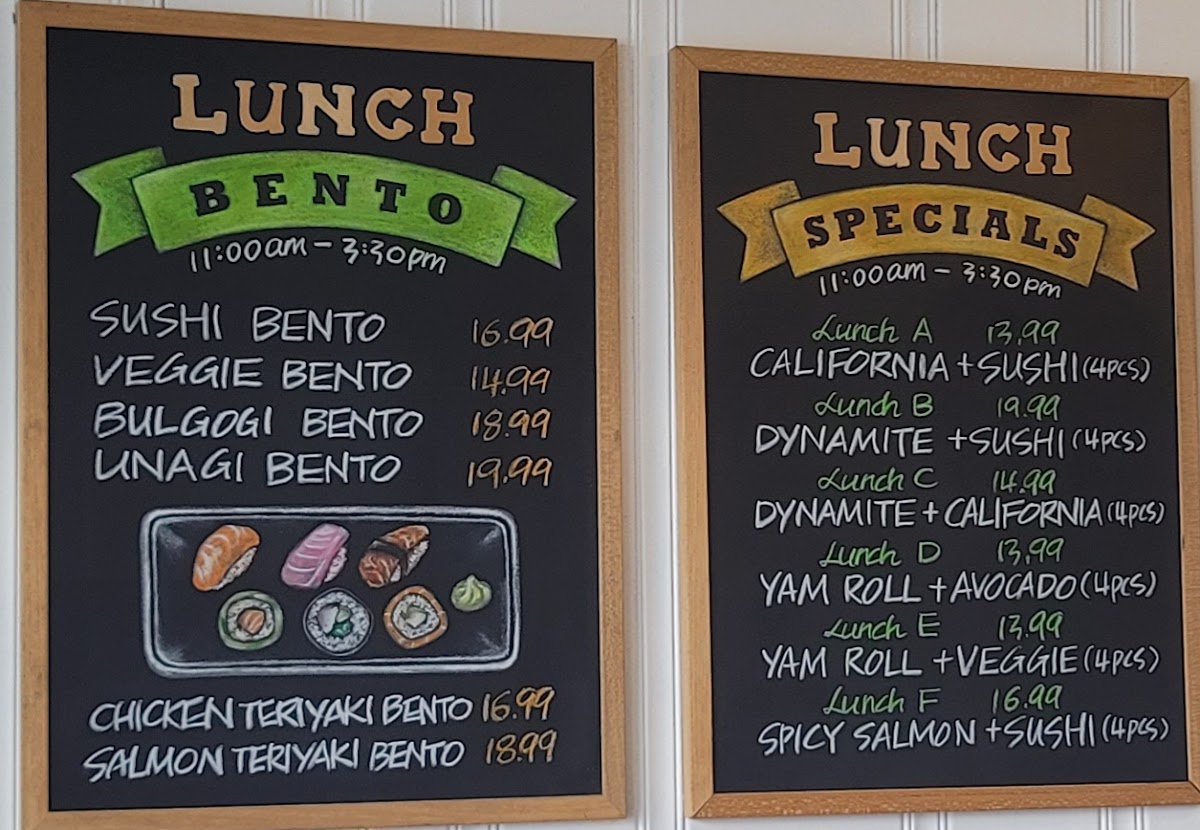 LUNCH
BENTO
11:00am - 3:30pm
SUSHI BENTO 16.99
VEGGIE BENTO 14.99
BULGOGI BENTO 18.99
UNAGI BENTO 19.99
CHICKEN TERIYAKI BENTO 16.99
SALMON TERIYAKI BENTO 18.99
LUNCH
SPECIALS
11:00am - 3:30pm
Lunch A 13.99
CALIFORNIA + SUSHI (4PCS)
Lunch B 19.99
DYNAMITE + SUSHI (4PCS)
Lunch C 14.99
DYNAMITE + CALIFORNIA (4PCS)
Lunch D 13.99
YAM ROLL + AVOCADO (4PCS)
Lunch E 13.99
YAM ROLL + VEGGIE (4PCS)
Lunch F 16.99
SPICY SALMON + SUSHI (4PCS)